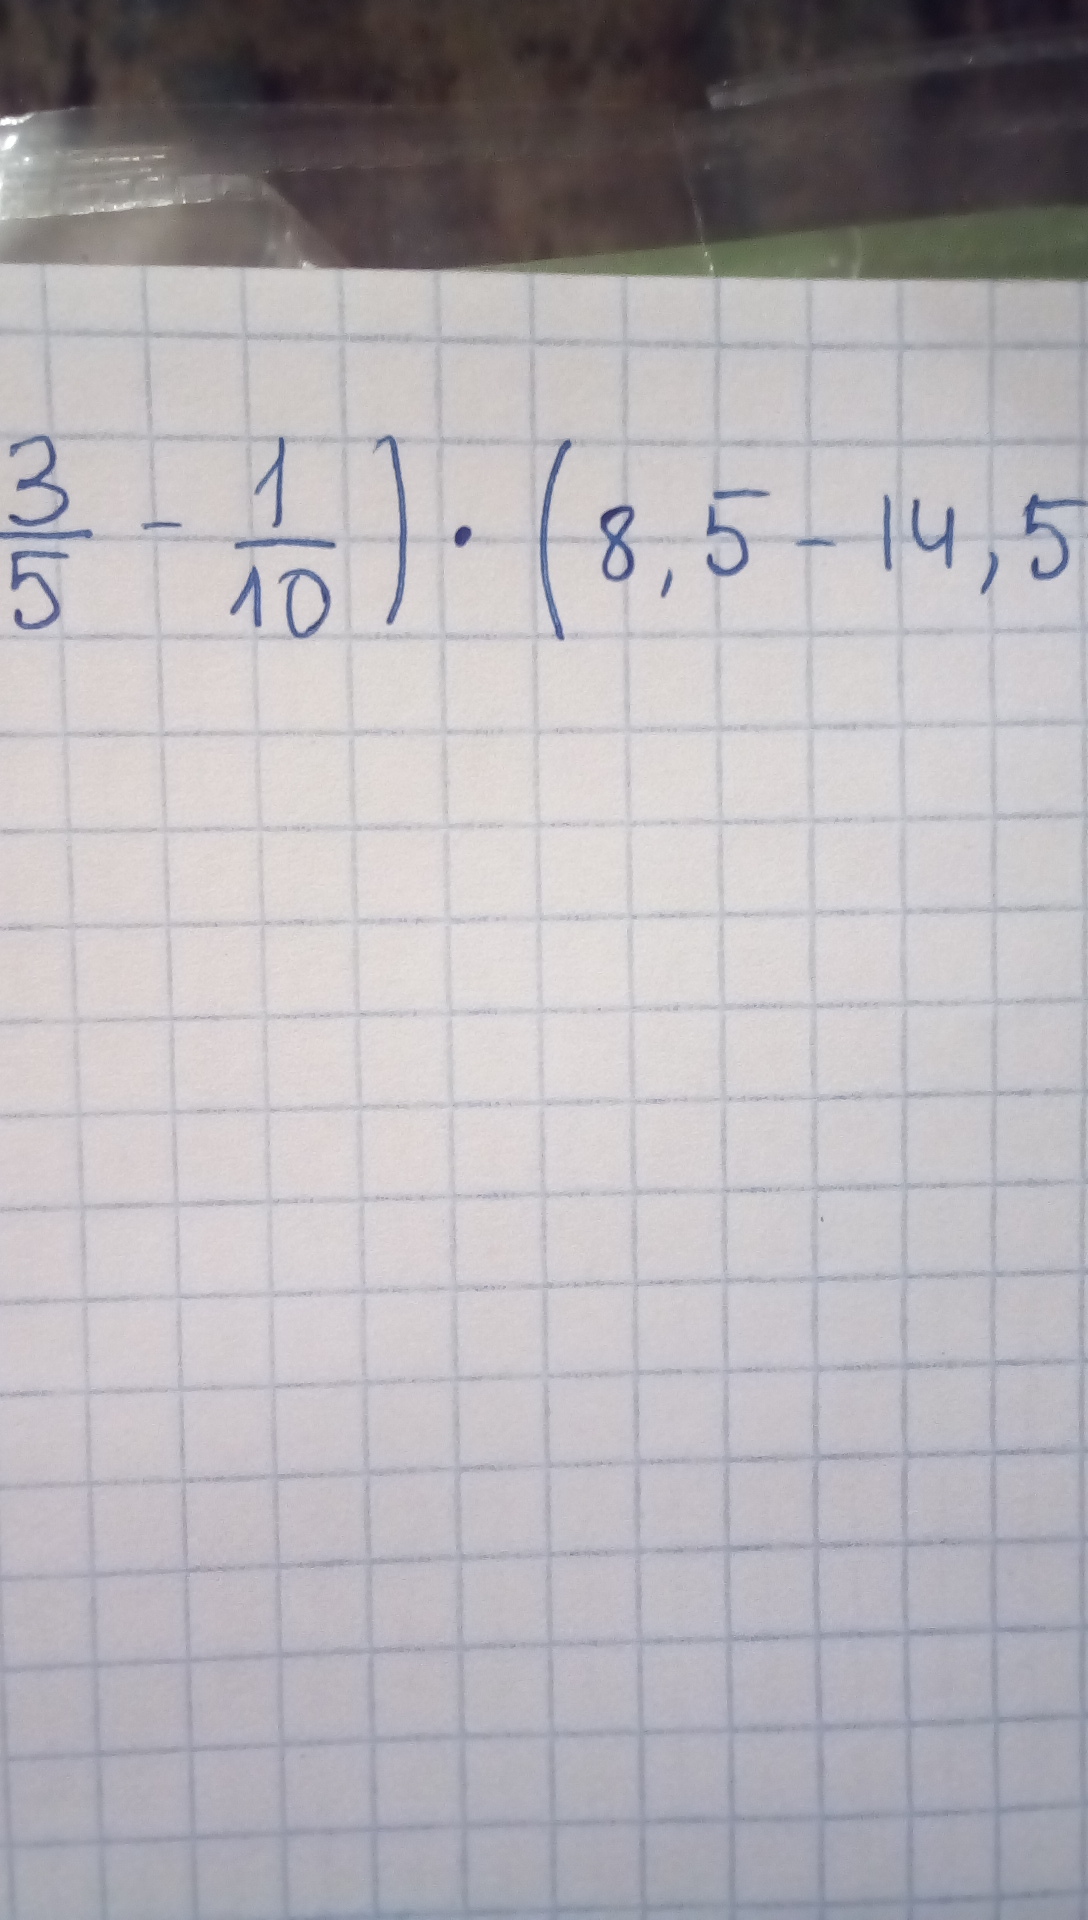 3/5 - 1/10) · (8,5 - 14,5